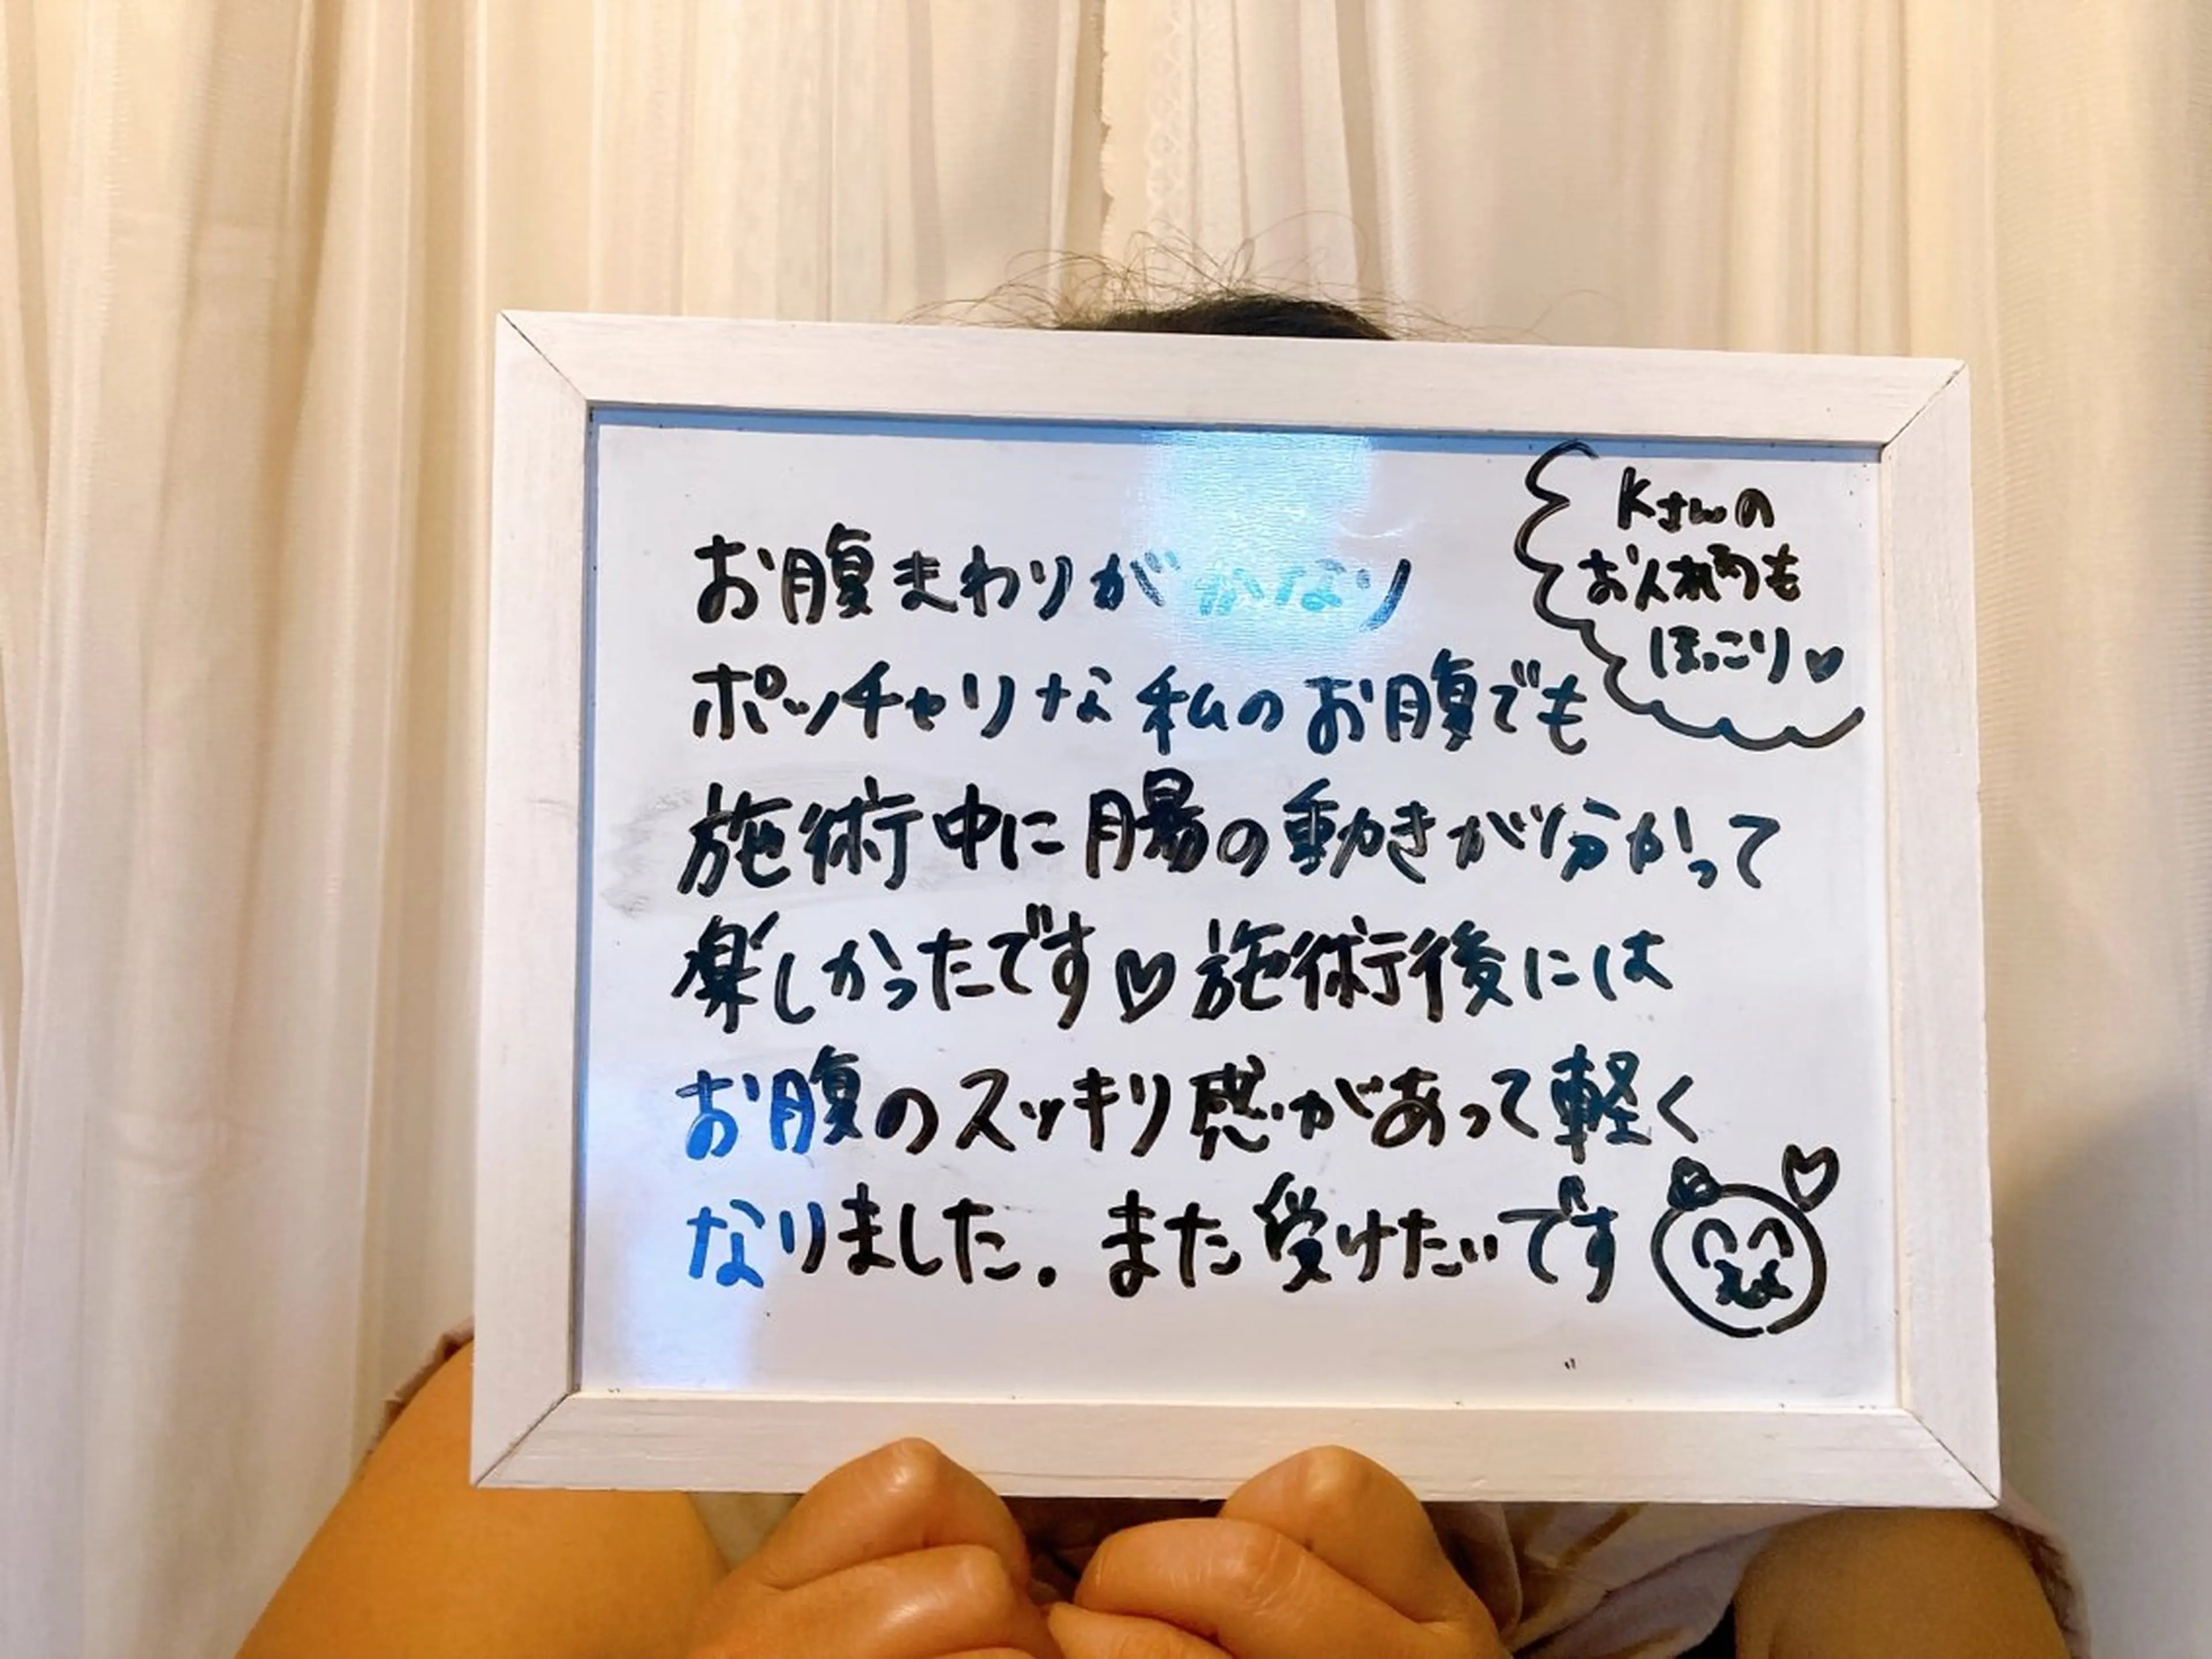 お腹まわりがかなり
ポッチャリな私のお腹でも
施術中に腸の動きが分かって
楽しかったです♡施術後には
お腹のスッキリ感があって軽く
なりました。また受けたいです
Kさんの
お人柄も
ほっこり♡